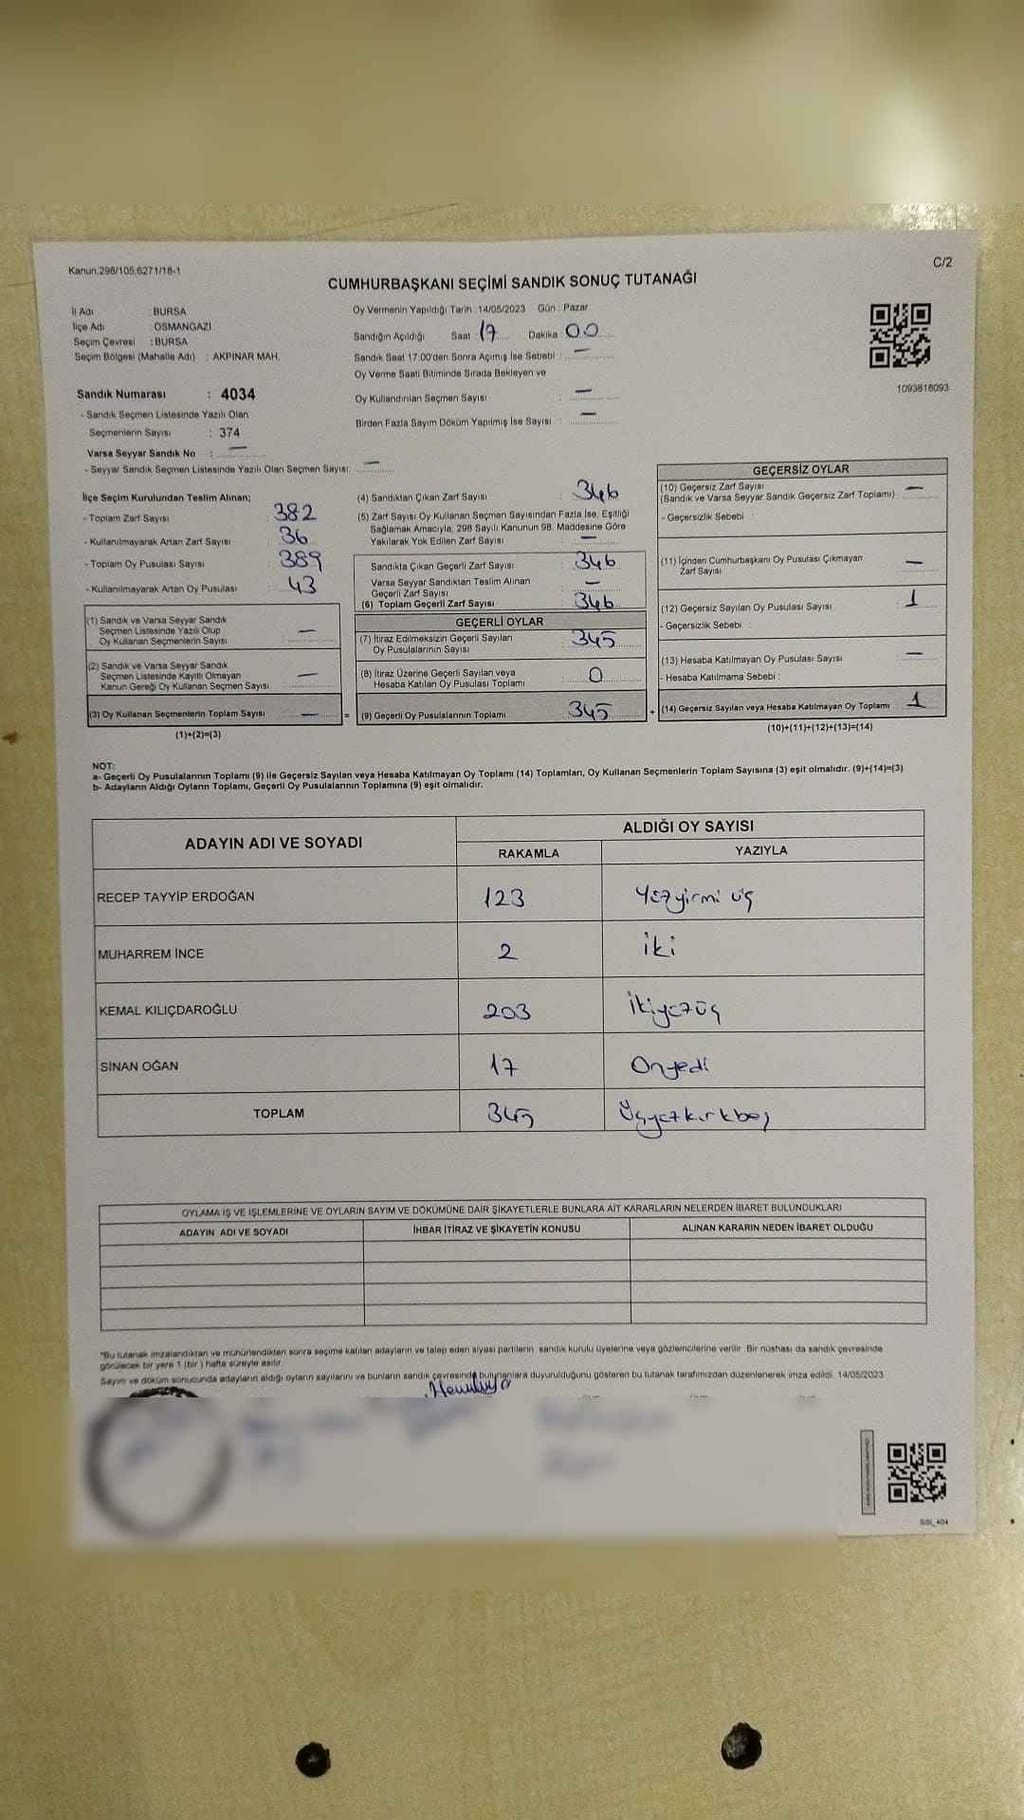 Kanun:298/105;6271/18-1
C/2
CUMHURBAŞKANI SEÇİMİ SANDIK SONUÇ TUTANAĞI
İl Adı : BURSA
İlçe Adı : OSMANGAZİ
Seçim Çevresi : BURSA
Seçim Bölgesi (Mahalle Adı) : AKPINAR MAH.
Oy Vermenin Yapıldığı Tarih : 14/05/2023 Gün : Pazar
Sandığın Açıldığı Saat 17 Dakika 00
Sandık Saat 17:00'den Sonra Açımış İse Sebebi : —
Oy Verme Saati Bitiminde Sırada Bekleyen ve
Oy Kullandırılan Seçmen Sayısı : —
Birden Fazla Sayım Döküm Yapılmış İse Sayısı : —
1093818093
Sandık Numarası : 4034
- Sandık Seçmen Listesinde Yazılı Olan
Seçmenlerin Sayısı : 374
Varsa Seyyar Sandık No : —
- Seyyar Sandık Seçmen Listesinde Yazılı Olan Seçmen Sayısı: —
İlçe Seçim Kurulundan Teslim Alınan;
- Toplam Zarf Sayısı : 382
- Kullanılmayarak Artan Zarf Sayısı : 36
- Toplam Oy Pusulası Sayısı : 389
- Kullanılmayarak Artan Oy Pusulası : 43
(1) Sandık ve Varsa Seyyar Sandık
Seçmen Listesinde Yazılı Olup
Oy Kullanan Seçmenlerin Sayısı —
(2) Sandık ve Varsa Seyyar Sandık
Seçmen Listesinde Kayıtlı Olmayan
Kanun Gereği Oy Kullanan Seçmen Sayısı —
(3) Oy Kullanan Seçmenlerin Toplam Sayısı —
(1)+(2)=(3)
=
(4) Sandıktan Çıkan Zarf Sayısı : 346
(5) Zarf Sayısı Oy Kullanan Seçmen Sayısından Fazla İse, Eşitliği
Sağlamak Amacıyla, 298 Sayılı Kanunun 98. Maddesine Göre
Yakılarak Yok Edilen Zarf Sayısı —
Sandıkta Çıkan Geçerli Zarf Sayısı : 346
Varsa Seyyar Sandıktan Teslim Alınan
Geçerli Zarf Sayısı —
(6) Toplam Geçerli Zarf Sayısı 346
GEÇERLİ OYLAR
(7) İtiraz Edilmeksizin Geçerli Sayılan
Oy Pusulalarının Sayısı 345
(8) İtiraz Üzerine Geçerli Sayılan veya
Hesaba Katılan Oy Pusulası Toplamı 0
(9) Geçerli Oy Pusulalarının Toplamı 345
+
GEÇERSİZ OYLAR
(10) Geçersiz Zarf Sayısı
(Sandık ve Varsa Seyyar Sandık Geçersiz Zarf Toplamı) —
- Geçersizlik Sebebi :
(11) İçinden Cumhurbaşkanı Oy Pusulası Çıkmayan
Zarf Sayısı —
(12) Geçersiz Sayılan Oy Pusulası Sayısı 1
- Geçersizlik Sebebi :
(13) Hesaba Katılmayan Oy Pusulası Sayısı —
- Hesaba Katılmama Sebebi :
(14) Geçersiz Sayılan veya Hesaba Katılmayan Oy Toplamı 1
(10)+(11)+(12)+(13)=(14)
NOT:
a- Geçerli Oy Pusulalarının Toplamı (9) ile Geçersiz Sayılan veya Hesaba Katılmayan Oy Toplamı (14) Toplamları, Oy Kullanan Seçmenlerin Toplam Sayısına (3) eşit olmalıdır. (9)+(14)=(3)
b- Adayların Aldığı Oyların Toplamı, Geçerli Oy Pusulalarının Toplamına (9) eşit olmalıdır.
ADAYIN ADI VE SOYADI
ALDIĞI OY SAYISI
RAKAMLA YAZIYLA
RECEP TAYYİP ERDOĞAN 123 Yüzyirmi üç
MUHARREM İNCE 2 iki
KEMAL KILIÇDAROĞLU 203 İkiyüzüç
SİNAN OĞAN 17 Onyedi
TOPLAM 345 Üçyüzkırkbeş
OYLAMA İŞ VE İŞLEMLERİNE VE OYLARIN SAYIM VE DÖKÜMÜNE DAİR ŞİKAYETLERLE BUNLARA AİT KARARLARIN NELERDEN İBARET BULUNDUKLARI
ADAYIN ADI VE SOYADI İHBAR İTİRAZ VE ŞİKAYETİN KONUSU ALINAN KARARIN NEDEN İBARET OLDUĞU
*Bu tutanak imzalandıktan ve mühürlendikten sonra seçime katılan adayların ve talep eden siyasi partilerin, sandık kurulu üyelerine veya gözlemcilerine verilir. Bir nüshası da sandık çevresinde
görülecek bir yere 1 (bir ) hafta süreyle asılır.
Sayım ve döküm sonucunda adayların aldığı oyların sayılarını ve bunların sandık çevresinde bulunanlara duyurulduğunu gösteren bu tutanak tarafımızdan düzenlenerek imza edildi. 14/05/2023